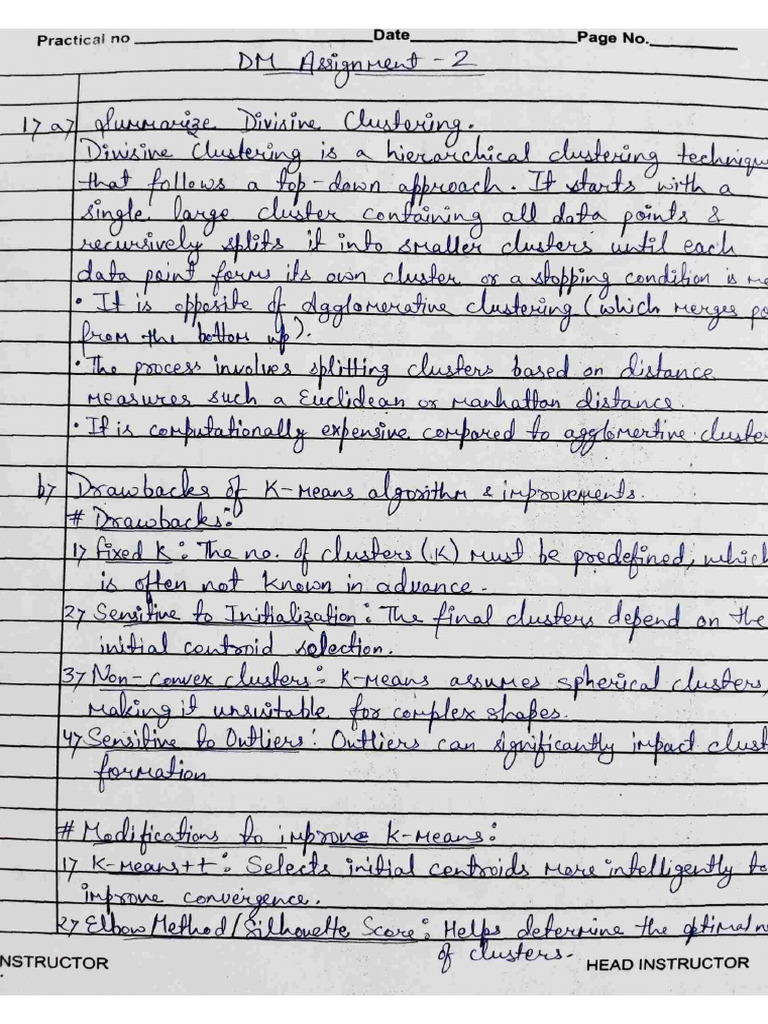 Practical no Date Page No.
DM Assignment - 2
1> a> Summarize Divisive Clustering.
Divisive Clustering is a hierarchical clustering techniqu
that follows a top-down approach. It starts with a
single large cluster containing all data points &
recursively splits it into smaller clusters until each
data point forms its own cluster or a stopping condition is me
• It is opposite of Agglomerative clustering (which merges po
from the bottom up).
• The process involves splitting clusters based on distance
measures such a Euclidean or Manhattan distance.
• It is computationally expensive compared to agglomertive cluste
b> Drawbacks of K-Means algorithm & improvements.
# Drawbacks:
1> fixed K: The no. of clusters (K) must be predefined, which
is often not known in advance.
2> Sensitive to Initialization: The final clusters depend on the
initial centroid selection.
3> Non-convex clusters: K-Means assumes spherical clusters,
making it unsuitable for complex shapes.
4> Sensitive to Outliers: Outliers can significantly impact clust
formation
# Modifications to improve K-means:
1> K-Means++: Selects initial centroids more intelligently to
improve convergence.
2> Elbow Method/Silhouette Score: Helps determine the optimal n
of clusters.
NSTRUCTOR HEAD INSTRUCTOR